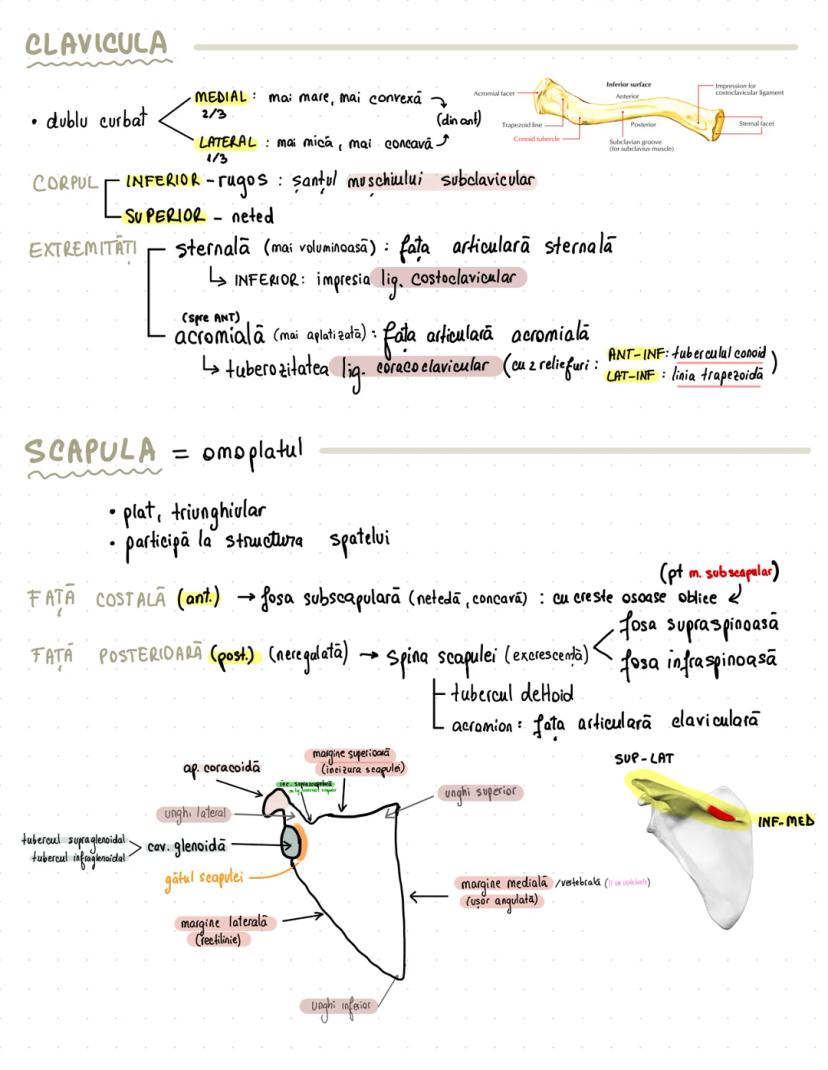 CLAVICULA
• dublu curbat
MEDIAL : mai mare, mai convexă
2/3
(din ant)
LATERAL : mai mică, mai concavă
1/3
Inferior surface
Acromial facet
Anterior
Impression for
costoclavicular ligament
Trapezoid line
Posterior
Sternal facet
Conoid tubercle
Subclavian groove
(for subclavius muscle)
CORPUL
INFERIOR - rugos : șanțul mușchiului subclavicular
SUPERIOR - neted
EXTREMITĂȚI
sternală (mai voluminoasă) : fața articulară sternală
↳ INFERIOR: impresia lig. costoclavicular
(spre ANT)
acromială (mai aplatizată) : fața articulară acromială
↳ tuberozitatea lig. coracoclavicular (cu 2 reliefuri :
ANT-INF: tuberculul conoid
LAT-INF : linia trapezoidă )
SCAPULA = omoplatul
• plat, triunghiular
• participă la structura spatelui
(pt m. subscapular)
FAȚĂ COSTALĂ (ant.) → fosa subscapulară (netedă, concavă) : cu creste osoase oblice
FAȚĂ POSTERIOARĂ (post.) (neregulată) → spina scapulei (excrescență)
fosa supraspinoasă
fosa infraspinoasă
tubercul deltoid
acromion : fața articulară claviculară
margine superioară
(incizura scapulei)
ap. coracoidă
unghi lateral
unghi superior
tubercul supraglenoidal
tubercul infraglenoidal
cav. glenoidă
gâtul scapulei
margine medială /vertebrală
(ușor angulată)
margine laterală
(rectilinie)
unghi inferior
SUP-LAT
INF-MED